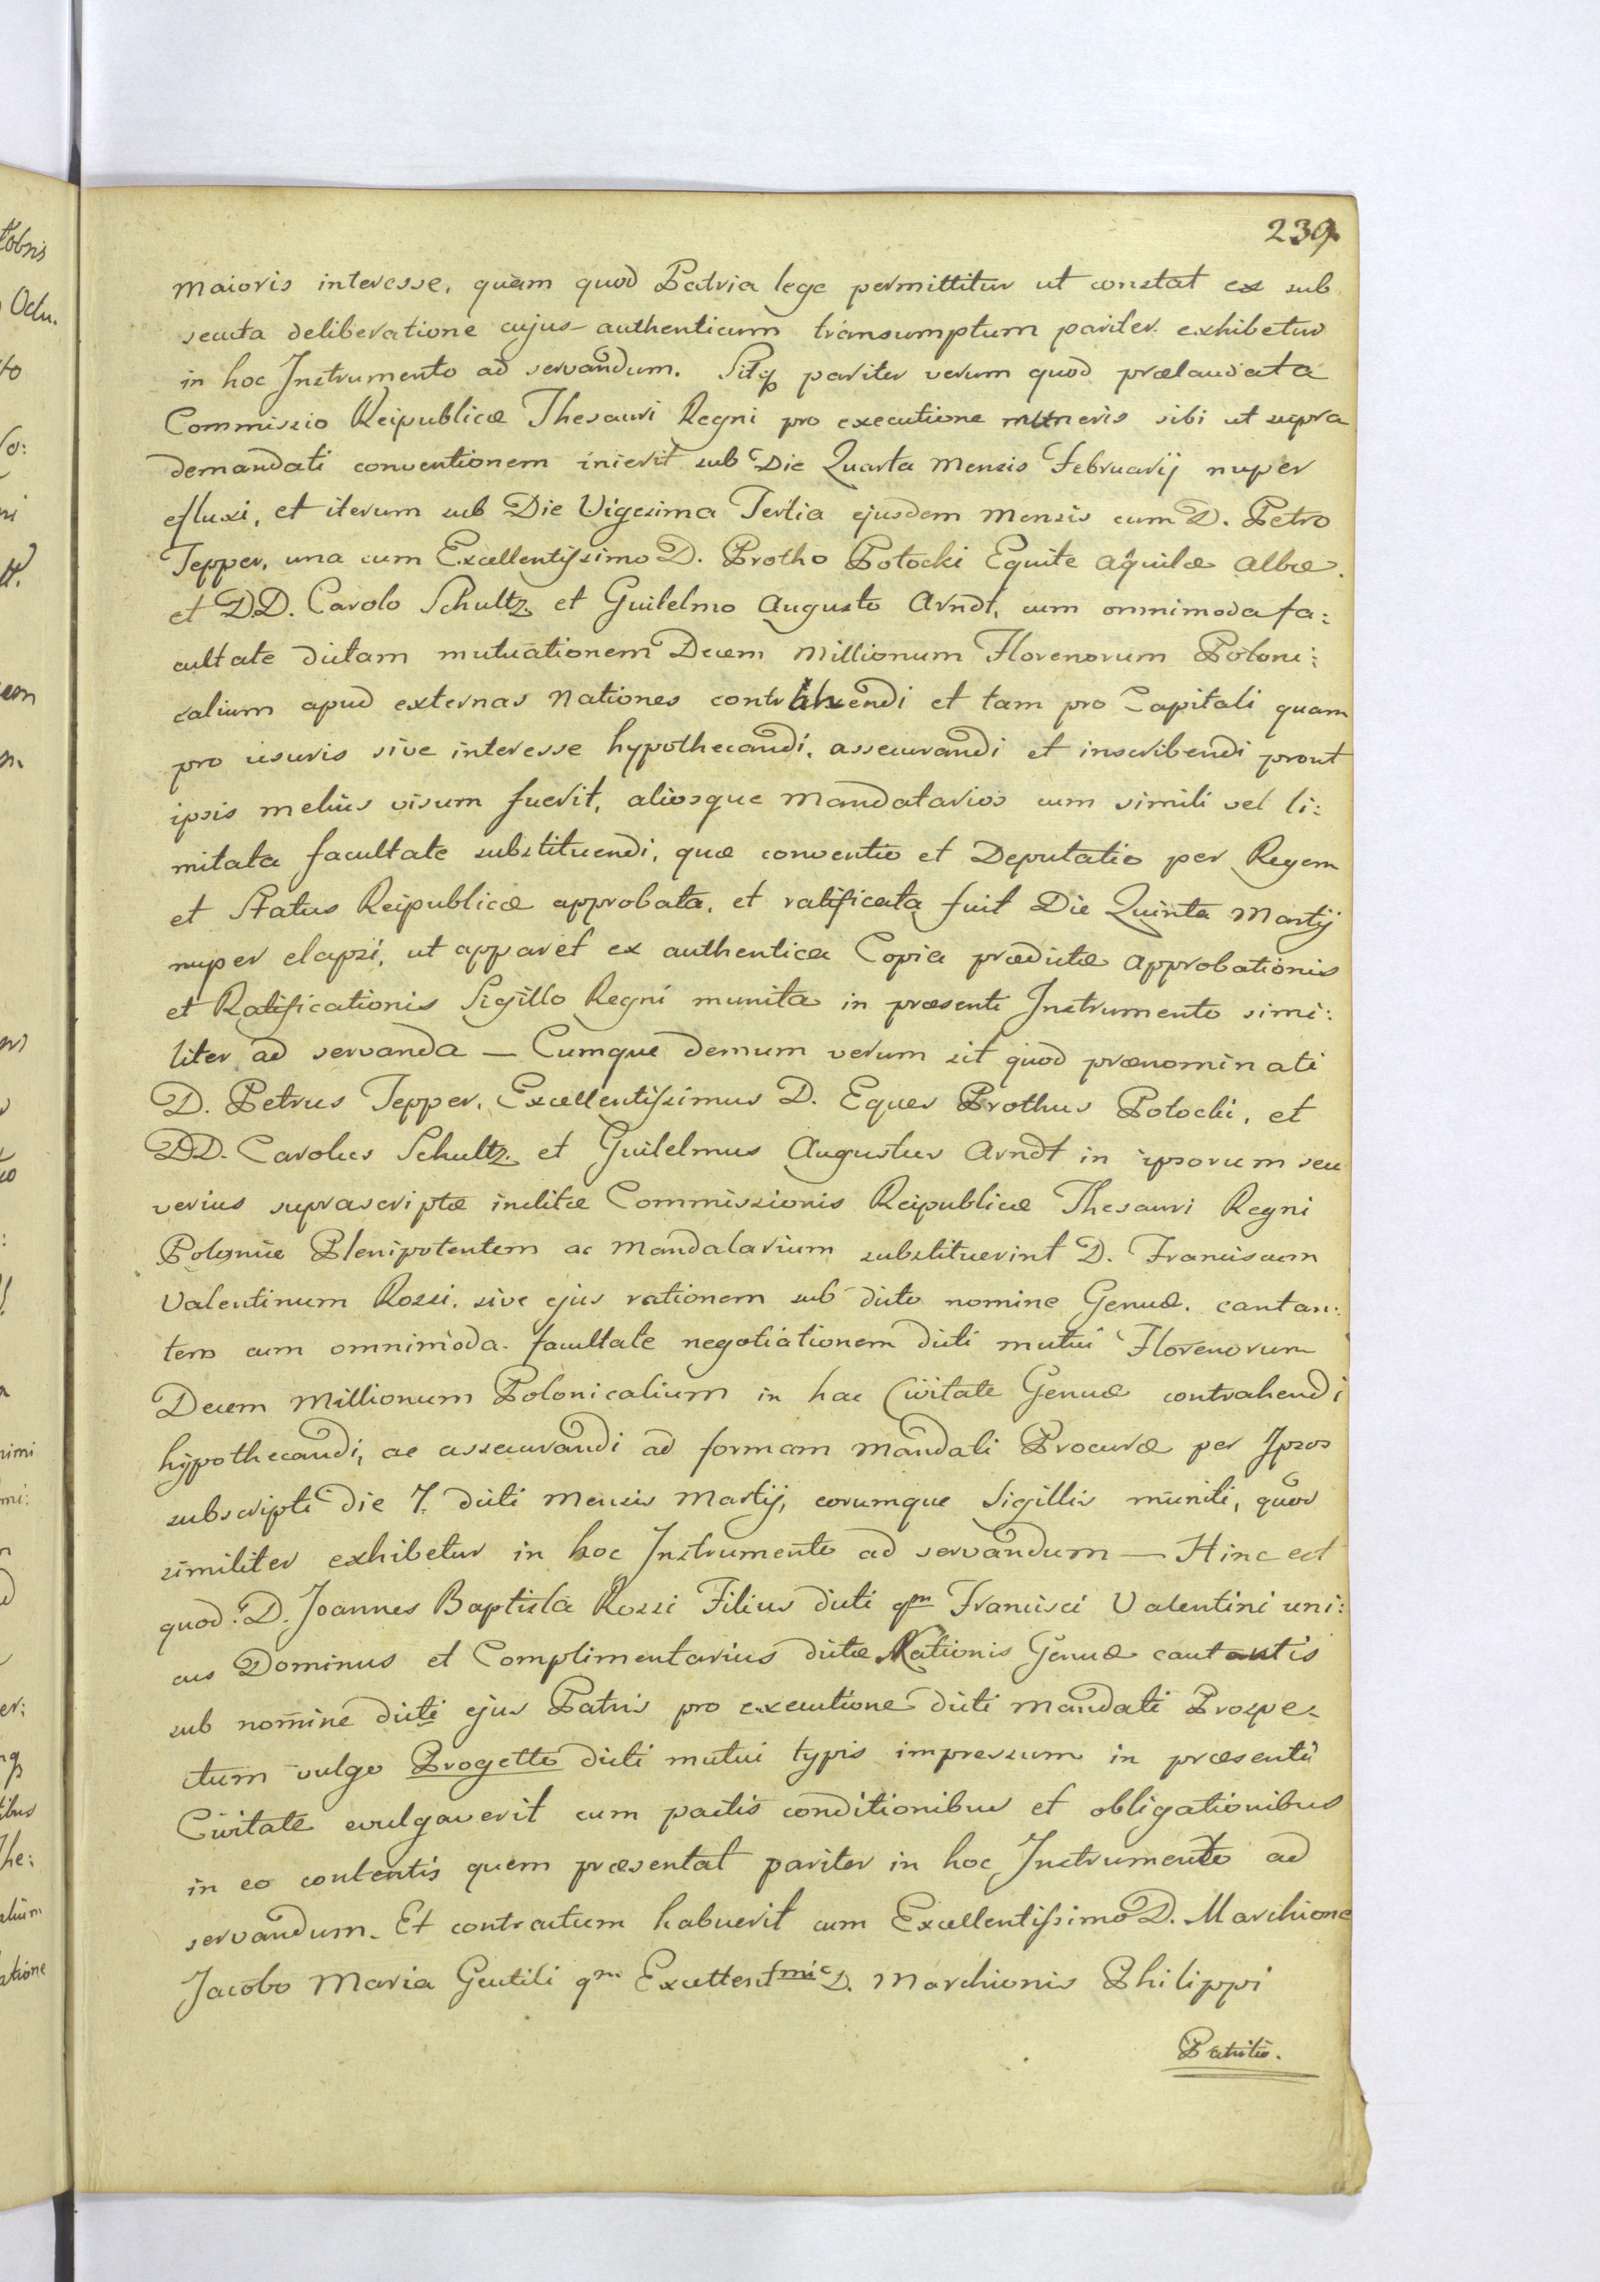 239
maioris interesse, quàm quod Patria lege permittitur ut constat ex sub
secuta deliberatione cujus authenticum transumptum pariter exhibetur
in hoc Instrumento ad servandum. Sitq pariter verum quod prælaudata
Commissio Reipublicæ Thesauri Regni pro executione muneris sibi ut supra
demandati conventionem inierit sub Die Quarta Mensis Februarij nuper
efluxi, et iterum sub Die Vigesima Tertia ejusdem Mensis cum D. Petro
Tepper, una cum Excellentissimo D. Protho Potocki Equite Aquilæ Albæ.
et DD. Carolo Schultz et Guilelmo Augusto Arndt, cum omnimoda fa:
cultate dictam mutuationem Decem Millionum Florenorum Poloni:
calium apud externas Nationes contrahendi et tam pro Capitali quam
pro usuris sive interesse hypothecandi, assecurandi et inscribendi prout
ipsis melius visum fuerit, aliosque Mandatarios cum simili vel li:
mitata facultate substituendi, quæ conventio et Deputatio per Regem
et Status Reipublicæ approbata, et ratificata fuit Die Quinta Martij
nuper elapsi, ut apparet ex authentica Copia prædictæ Approbationis
et Ratificationis Sigillo Regni munita in præsenti Instrumento simi:
liter ad servanda — Cumque demum verum sit quod prænominati
D. Petrus Tepper, Excellentissimus D. Eques Prothus Potocki, et
DD. Carolus Schultz et Guilelmus Augustus Arndt in ipsorum seu
verius suprascriptæ inclitæ Commissionis Reipublicæ Thesauri Regni
Poloniæ Plenipotentem ac Mandatarium substituerint D. Franciscum
Valentinum Rossi, sive ejus rationem sub dicto nomine Genuæ, cantan:
tem cum omnimoda facultate negotiationem dicti mutui Florenorum
Decem Millionum Polonicalium in hac Civitate Genuæ contrahendi
hypothecandi, ac assecurandi ad formam Mandati Procuræ per Ipsos
subscripti die 7. dicti Mensis Martij, eorumque Sigillis muniti, quod
similiter exhibetur in hoc Instrumento ad servandum — Hinc est
quod D. Joannes Baptista Rossi Filius dicti qm Francisci Valentini uni:
cus Dominus et Complimentarius dictæ Rationis Genuæ cantantis
sub nomine dicti ejus Patris pro executione dicti Mandati Prospe:
ctum vulgo Progetto dicti mutui typis impressum in præsenti
Civitate evulgaverit cum pactis conditionibus et obligationibus
in eo contentis quem præsentat pariter in hoc Instrumento ad
servandum. Et contractum habuerit cum Excellentissimo D. Marchione
Jacobo Maria Gentili qm Excellentmi D. Marchionis Philippi
Patritio.